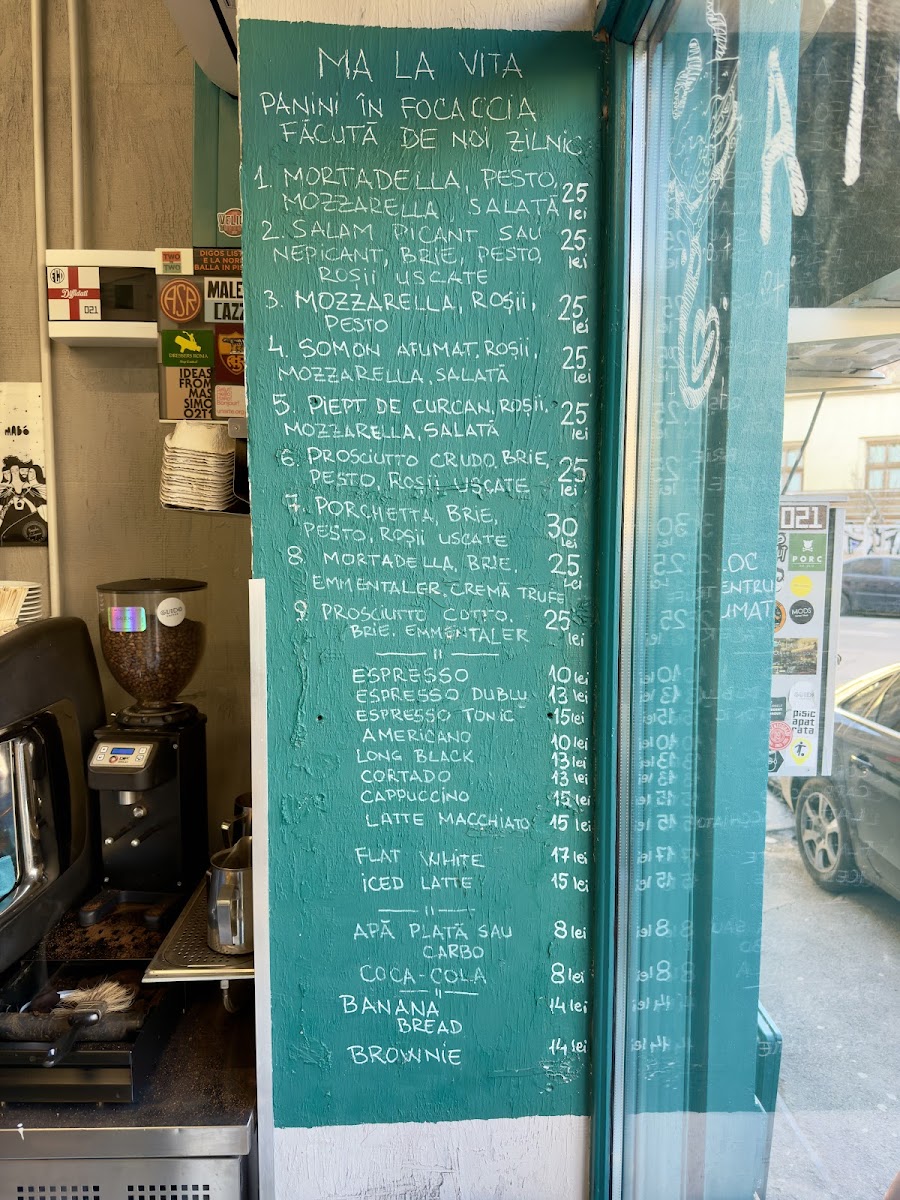 MA LA VITA
PANINI ÎN FOCACCIA
FĂCUTĂ DE NOI ZILNIC
1. MORTADELLA, PESTO,
MOZZARELLA SALATĂ 25 lei
2. SALAM PICANT SAU
NEPICANT, BRIE, PESTO, 25 lei
ROȘII USCATE
3. MOZZARELLA, ROȘII, 25 lei
PESTO
4. SOMON AFUMAT, ROȘII, 25 lei
MOZZARELLA, SALATĂ
5. PIEPT DE CURCAN, ROȘII, 25 lei
MOZZARELLA, SALATĂ
6. PROSCIUTTO CRUDO, BRIE, 25 lei
PESTO, ROȘII USCATE
7. PORCHETTA, BRIE, 30 lei
PESTO, ROȘII USCATE
8. MORTADELLA, BRIE, 25 lei
EMMENTALER, CREMĂ TRUFE
9. PROSCIUTTO COTTO, 25 lei
BRIE, EMMENTALER
ESPRESSO 10 lei
ESPRESSO DUBLU 13 lei
ESPRESSO TONIC 15 lei
AMERICANO 10 lei
LONG BLACK 13 lei
CORTADO 13 lei
CAPPUCCINO 15 lei
LATTE MACCHIATO 15 lei
FLAT WHITE 17 lei
ICED LATTE 15 lei
APĂ PLATĂ SAU 8 lei
CARBO
COCA-COLA 8 lei
BANANA 14 lei
BREAD
BROWNIE 14 lei
DIGOS
E LA
BALLA IN
TWO
TWO
ASR
MALE
CAZZ
Diffidati
021
DRESSERS ROMA
IDEAS
FROM
MAS
SIMO
021
MADÓ
021
PORC
MODS
pisic
apat
rata
LOC
ENTRU
UMAT